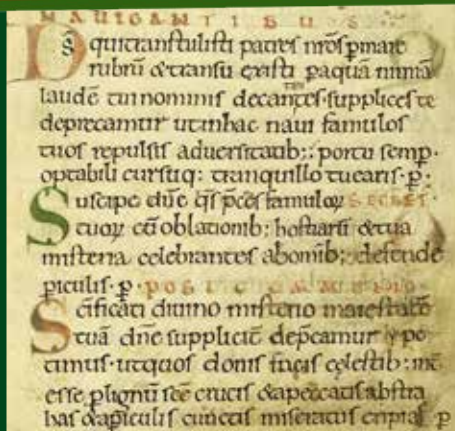 NAVIGANTIBUS
Ds qui transtulisti patres nros p mare
rubrū & transuexisti p aquā nimiā
laudē tui nominis decantantes· supplices te
deprecamur ut in hac naui famulos
tuos repulsis aduersitatib; portu semp·
optabili cursuq: tranquillo tuearis· p·
Suscipe dne qs pces famuloꝝ SECRET
tuoꝝ cū oblationib; hostiarū & tua
misteria celebrantes ab omib; defende
piculis· p· POST COMMUNIO
Scificati diuino misterio maiestatē
tuā dne supplicit depcamur & pe
timus· ut quos donis facis celestib: int
esse p lignū scē crucis & a peccatis abstra
has & a piculis cunctis miseratus eripias p